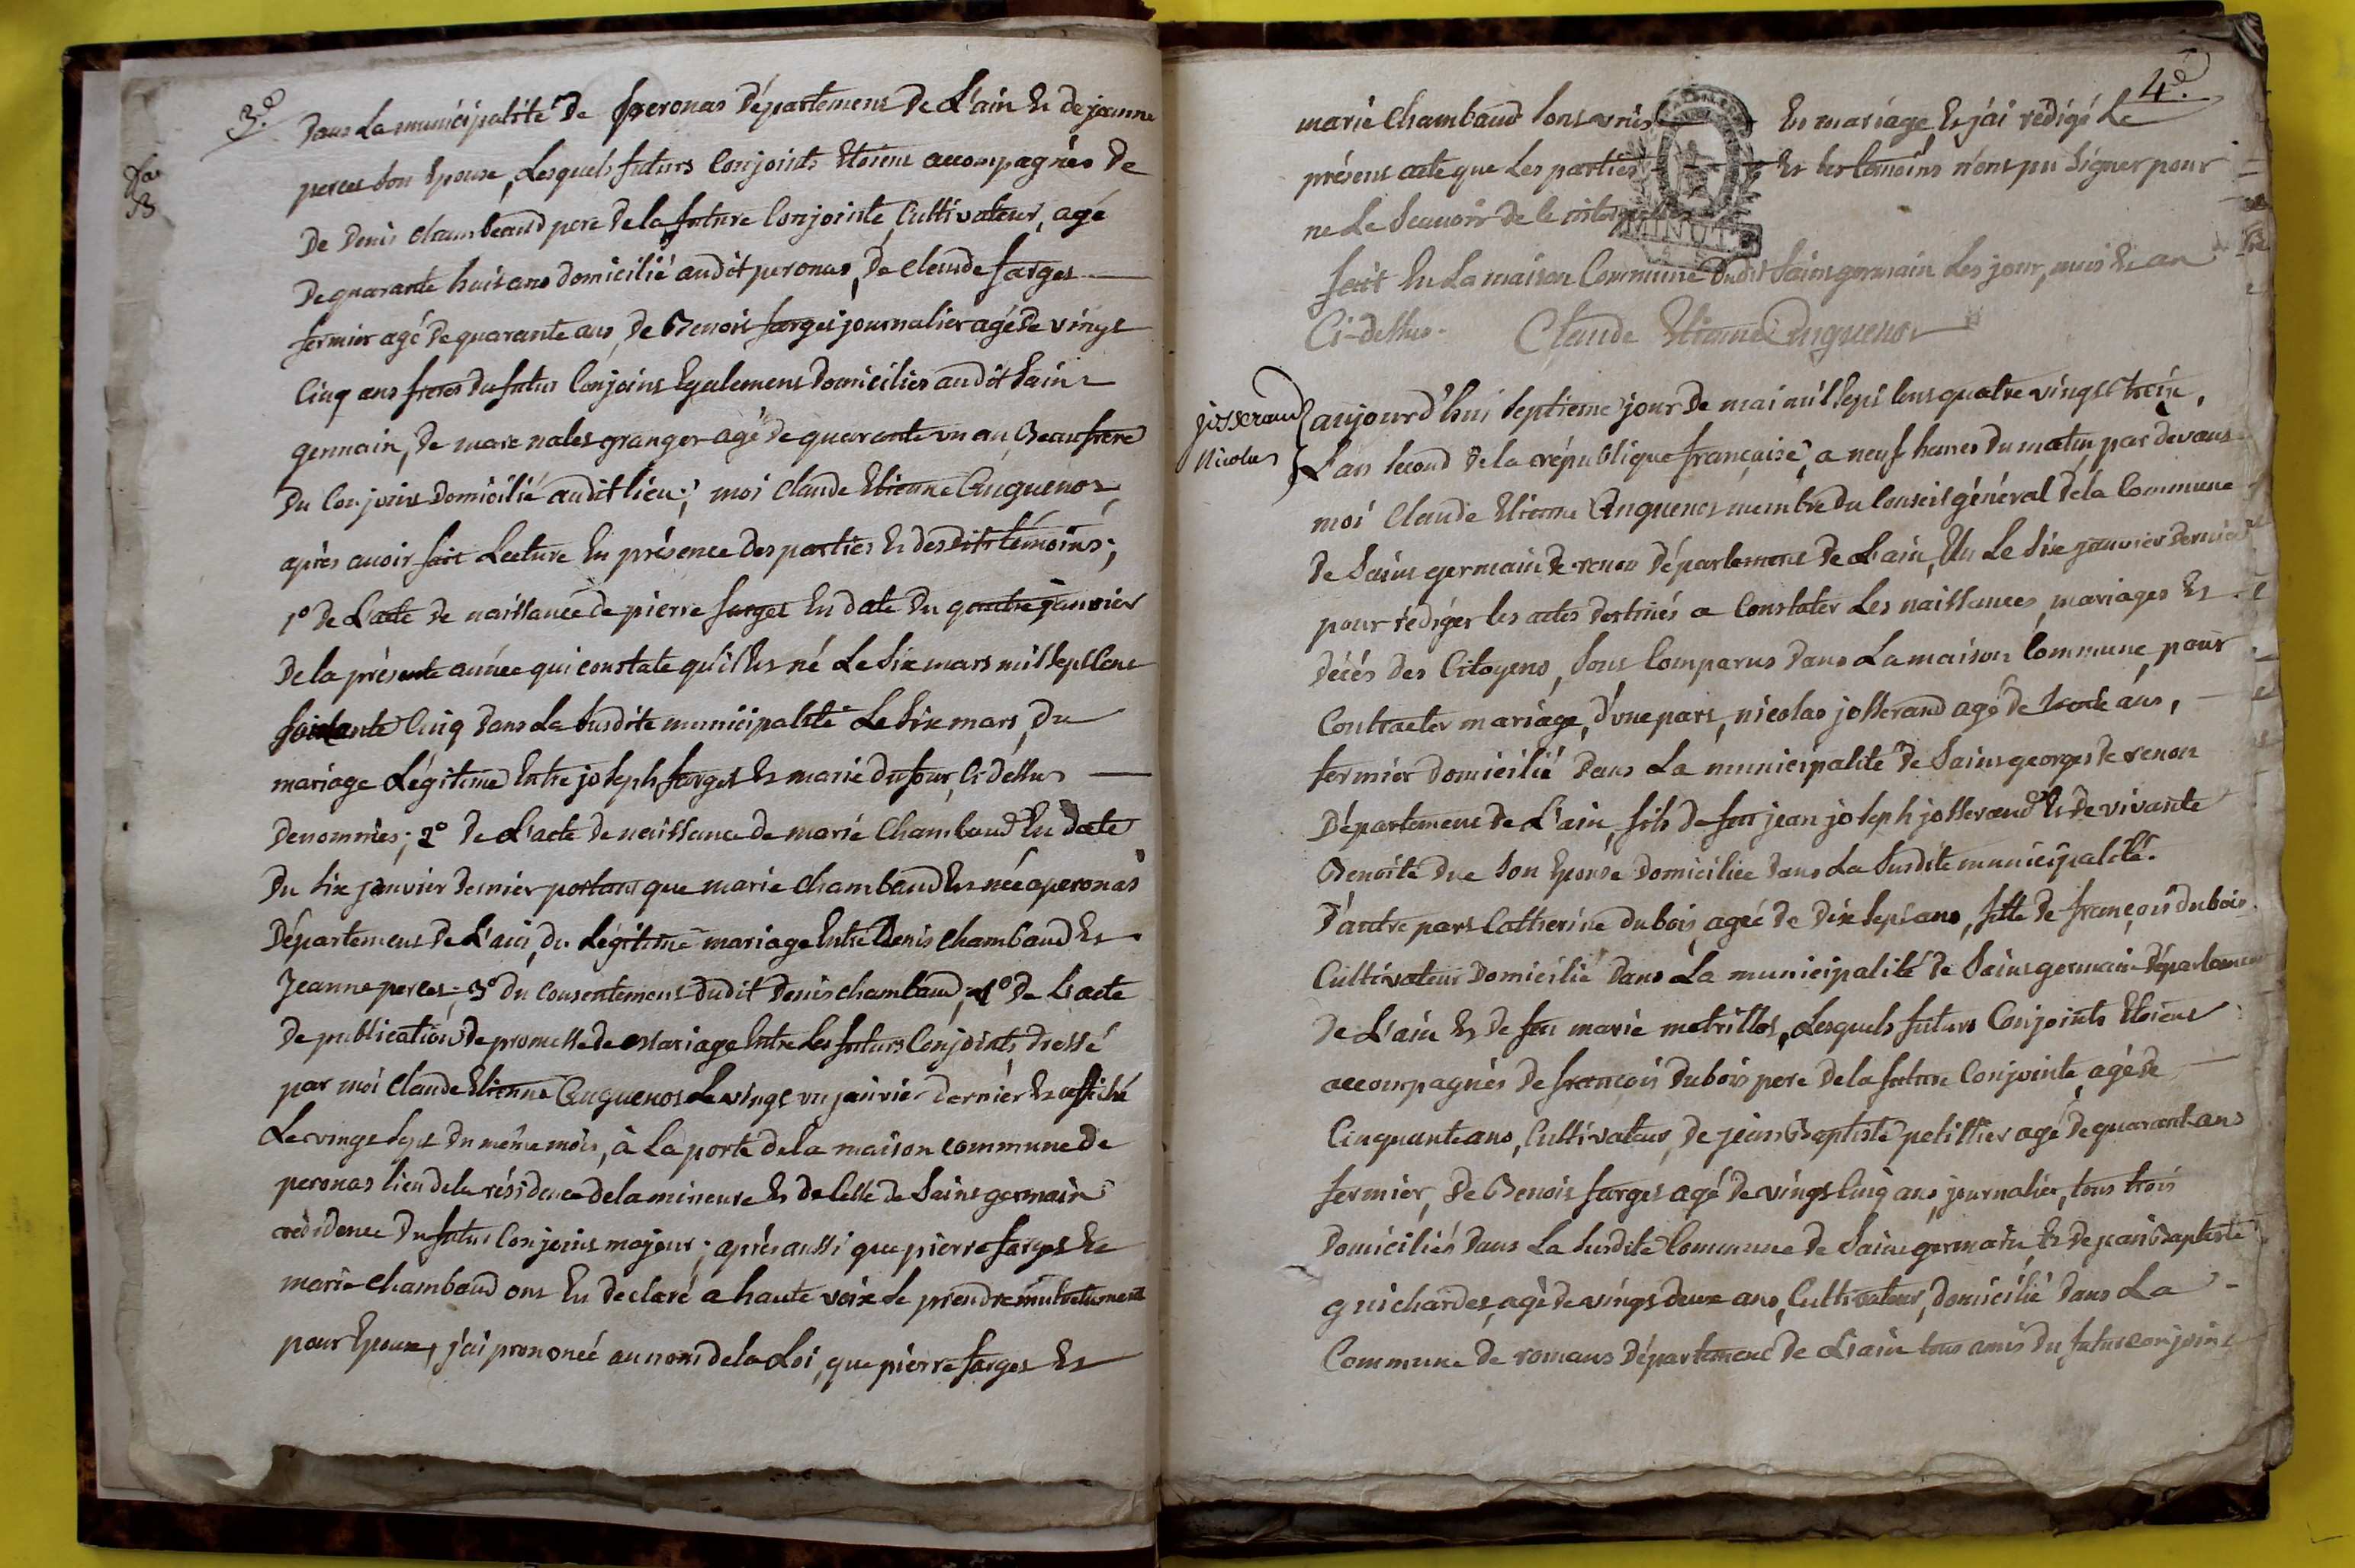 3.e
Dans La municipalité De peronas Département De L'ain Et de jeanne
perces Son Epouse, Lesquels futurs Conjoints Etoient accompagnés De
De Denis chambeaud pere De la future Conjointe, Cultivateur, agé
De quarante huit ans domicilié audit peronas, De claude farges
fermier agé De quarante ans, De Benoit farges journalier agé De vingt
Cinq ans freres du futur Conjoint Egalement Domiciliés audit Saint
germain, De marc nales granger agé De quarante un an, Beaufrere
Du Conjoint Domicilié audit lieu; moi Claude Etienne Cuguenot,
après avoir fait Lecture En présence des parties Et desdits témoins;
1º de L'acte De naissance de pierre farges En date Du quatre janvier
De la présente année qui constate qu'il Est né Le Six mars mil Sept Cent
Soixante Cinq Dans La Susdite municipalité Le Six mars, Du
mariage Légitime Entre joseph farges Et marie dufour, Ci dessus
Denommés; 2º De L'acte De naissance de marie Chambaud En date
Du Six janvier dernier portant que marie chambaud Est née a peronas
Département De L'ain, du Légitime mariage Entre Denis Chambaud Et
Jeanne perces; 3º du Consentement dudit Denis chambaud; 4º de L'acte
De publication De promesse de Mariage Entre Les futurs Conjoints dressé
par moi Claude Etienne Cuguenot Le vingt un janvier dernier Et affiché
Le vingt Sept du même mois, à La porte de la maison commune De
peronas lieu de la résidence de la mineure Et de Celle de Saint germain
résidence Du futur Conjoint majeur; après aussi que pierre farges Et
marie Chambaud ont Eu declaré a haute voix Se prendre mutuelement
pour Epoux, j'ai prononcé au nom de la Loi, que pierre farges Et
4.e
marie Chambaud Sont unis En mariage, Et j'ai rédigé Le
présent acte que Les parties Et Les temoins n'ont pu Signer pour
ne Le Scauoir de le
MINUTE
fait En La maison Commune dudit Saint germain Les jour, mois Et an
Ci-dessus. Claude Etienne Cuguenot
josserand
Nicolas
aujourd'hui Septieme jour De mai mil Sept Cent quatre vingt treize,
L'an Second de la république française, a neuf heures Du matin, par devant
moi Claude Etienne Cuguenot membre Du Conseil général de la Commune
De Saint germain de renon Département De L'ain, Elu Le Six janvier Dernier
pour rédiger les actes destinés a Constater Les naissances, mariages Et
décès des Citoyens, Sont Comparus Dans La maison Commune, pour
Contracter mariage, D'une part, nicolas josserand agé De trente ans,
fermier domicilié Dans La municipalité De Saint georges de renon
Département De L'ain, fils de feu jean joseph josserand Et De vivante
Benoite due Son Epouse Domiciliée Dans La Susdite municipalité.
D'autre part Catherine dubois, agée De Dix Sept ans, fille De françois dubois
Cultivateur Domicilié Dans La municipalité de Saint germain Département
De L'ain Et De feu marie metrillot, Lesquels futurs Conjoints Etoient
accompagnés De françois Dubois pere De la future Conjointe, agé De
Cinquante ans, Cultivateur, De jean Baptiste petillier agé De quarante ans
fermier, De Benoit farges agé De vingt Cinq ans, journalier, tous trois
Domiciliés Dans La Susdite Commune de Saint germain, Et De jean Baptiste
guichardes, agé De vingt deux ans, Cultivateur, domicilié Dans La
Commune De romans Département De L'ain tous amis Du futur conjoint